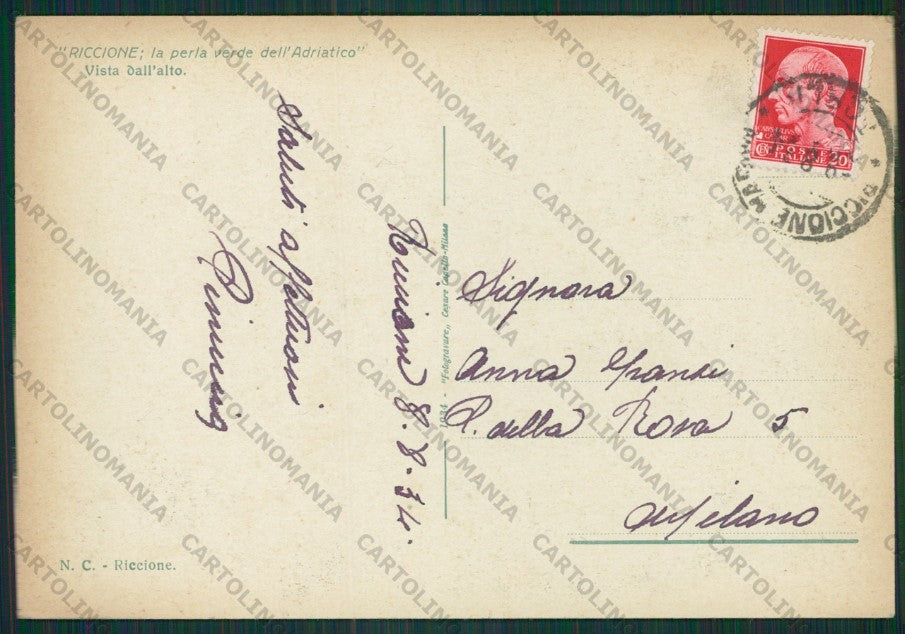 "RICCIONE; la perla verde dell'Adriatico"
Vista dall'alto.
Saluti affettuosi
Riccione 8-8-34.
1934 - "Fotogravure" Cesare Capello-Milano
CENT POSTE 20
ITALIANE
RICCIONE
Signora
Anna
P. della Rosa 5
Milano
N. C. - Riccione.
CARTOLINOMANIA